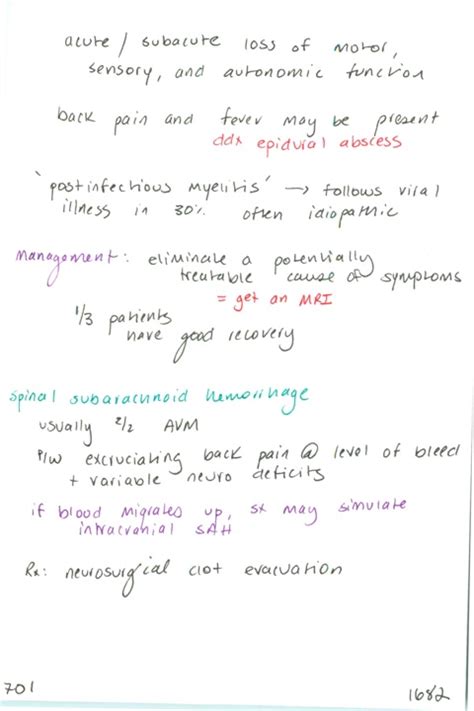 acute / subacute loss of motor,
sensory, and autonomic function
back pain and fever may be present
ddx epidural abscess
'postinfectious myelitis' → follows viral
illness in 30% often idiopathic
management: eliminate a potentially
treatable cause of symptoms
= get an MRI
1/3 patients
have good recovery
spinal subarachnoid hemorrhage
usually 2/2 AVM
p/w excruciating back pain @ level of bleed
+ variable neuro deficits
if blood migrates up, sx may simulate
intracranial SAH
Rx: neurosurgical clot evacuation
701
1682